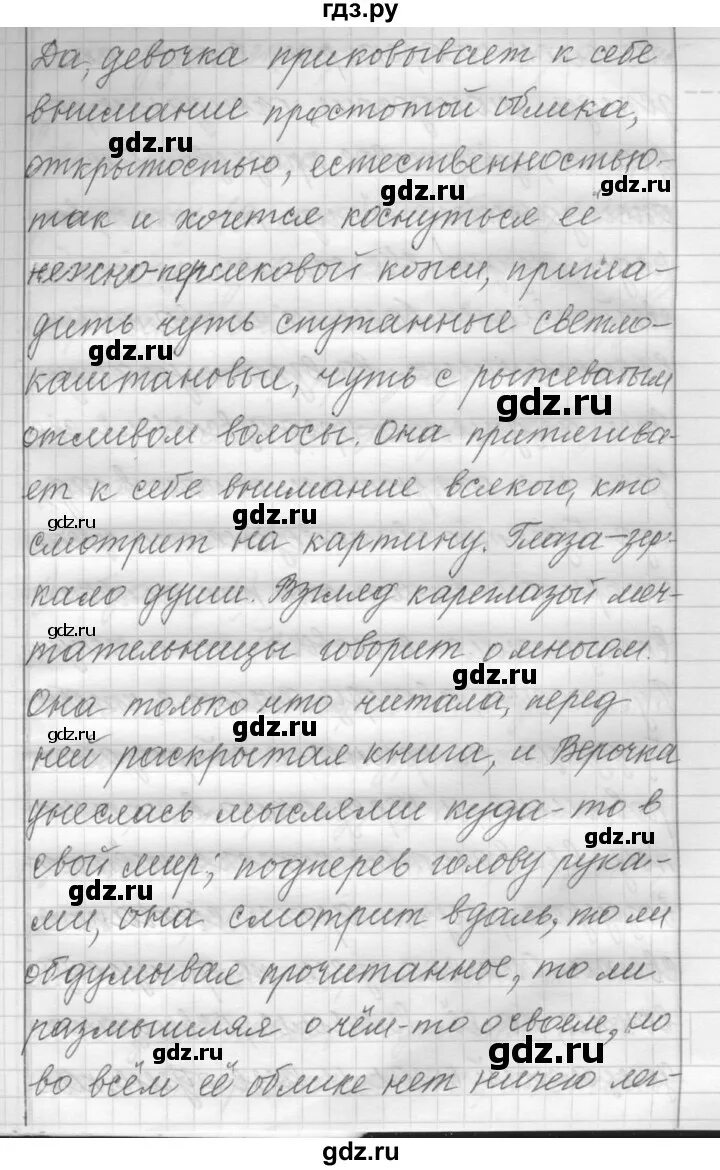 гдз.ру
Да, девочка приковывает к себе
внимание простотой облика,
gdz.ru
открытостью, естественностью-
gdz.ru gdz.ru
так и хочется коснуться её
нежно-персиковой кожи, пригла-
дить чуть спутанные светло-
gdz.ru
каштановые, чуть с рыжеватым
gdz.ru
отливом волосы. Она притягива-
ет к себе внимание всякого, кто
gdz.ru gdz.ru
смотрит на картину. Глаза-зер-
кало души. Взгляд кареглазый меч-
gdz.ru
тательницы говорит о многом.
gdz.ru
Она только что читала, перед
gdz.ru gdz.ru
ней раскрытая книга, и Верочка
унеслась мыслями куда-то в
gdz.ru
свой мир; подперев голову рука-
gdz.ru
ми, она смотрит вдаль, то ли
обдумывая прочитанное, то ли
размышляя о чём-то о своем, но
gdz.ru gdz.ru
во всём её облике нет ничего лег-
gdz.ru